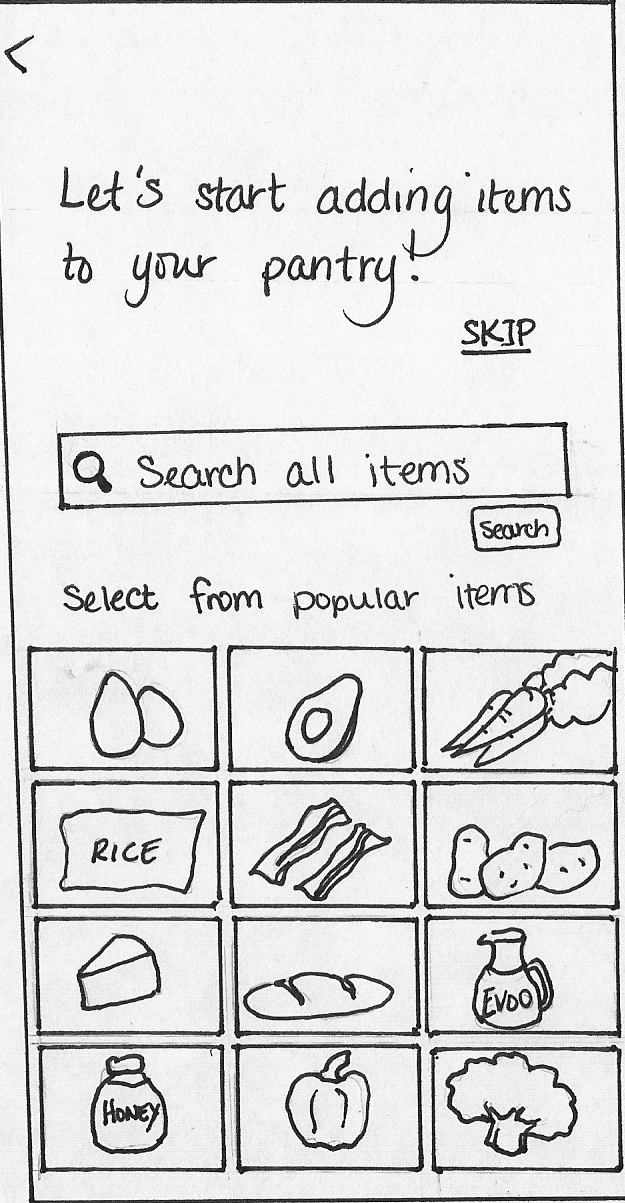 <
Let's start adding items
to your pantry!
SKIP
Search all items
Search
Select from popular items
RICE
EVOO
HONEY